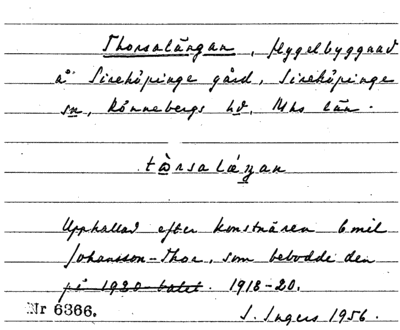 Thorsalängan, flygelbyggnad
å Sireköpinge gård, Sireköpinge
sn, Rönnebergs hd, Mhs län.
tɷ̀rsalæ̀ŋan
Upphallad efter konstnären Emil
Johansson-Thor, som bebodde den
på 1920-talet. 1918-20.
Nr 6366.
S. Ingers 1956.